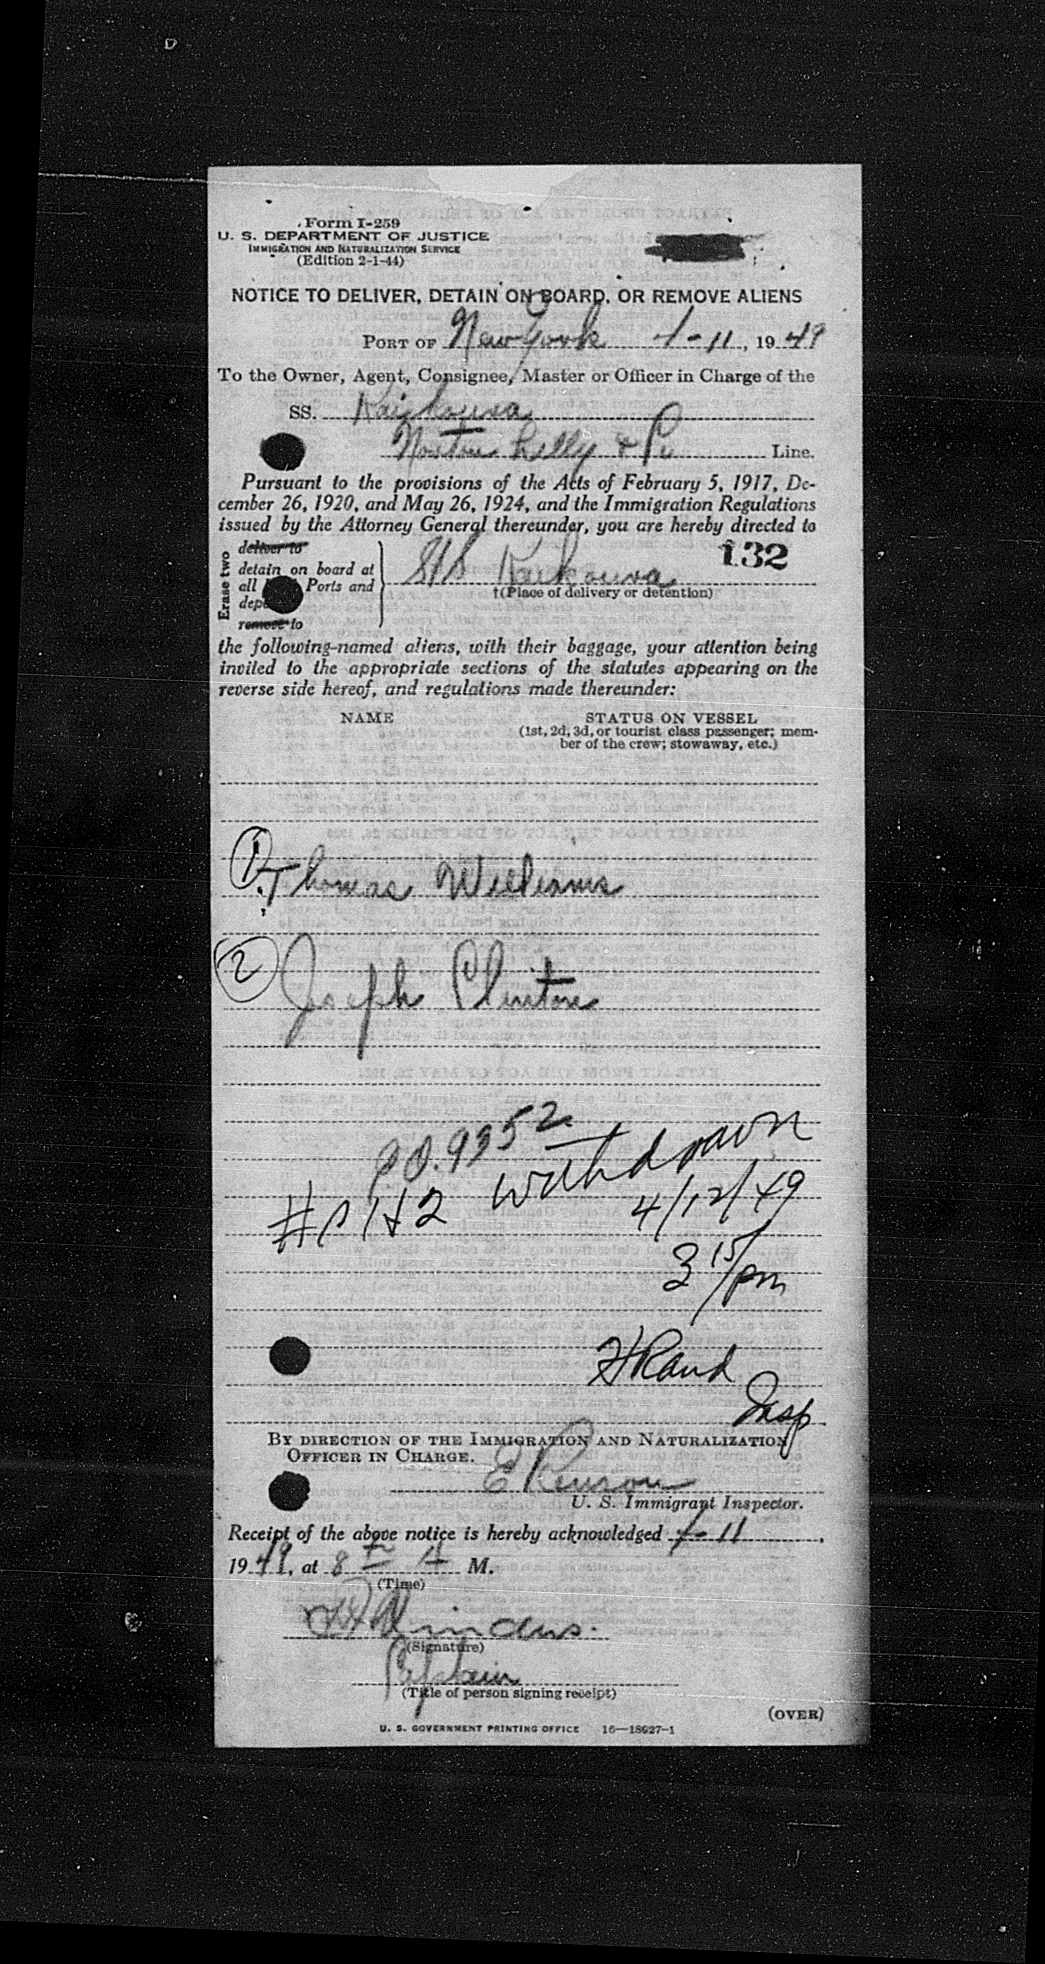 Form I-259
U. S. DEPARTMENT OF JUSTICE
IMMIGRATION AND NATURALIZATION SERVICE
(Edition 2-1-44)
NOTICE TO DELIVER, DETAIN ON BOARD, OR REMOVE ALIENS
PORT OF New York 4-11, 1949
To the Owner, Agent, Consignee, Master or Officer in Charge of the
SS. Kaikoura
Norton Lilly & Co Line.
Pursuant to the provisions of the Acts of February 5, 1917, De-
cember 26, 1920, and May 26, 1924, and the Immigration Regulations
issued by the Attorney General thereunder, you are hereby directed to
132
Erase two
deliver to
detain on board at
all Ports and
remove to
S/S Kaikoura
†(Place of delivery or detention)
the following-named aliens, with their baggage, your attention being
invited to the appropriate sections of the statutes appearing on the
reverse side hereof, and regulations made thereunder:
NAME STATUS ON VESSEL
(1st, 2d, 3d, or tourist class passenger; mem-
ber of the crew; stowaway, etc.)
1. Thomas Williams
2 Joseph Clinton
P.O. 9352
#s 1 & 2 withdrawn
4/12/49
3 15/pm
H Rand
Insp
BY DIRECTION OF THE IMMIGRATION AND NATURALIZATION
OFFICER IN CHARGE.
U. S. Immigrant Inspector.
Receipt of the above notice is hereby acknowledged 4-11,
1949, at 8 A M.
(Time)
(Signature)
Captain
(Title of person signing receipt)
(OVER)
U. S. GOVERNMENT PRINTING OFFICE 16—18627-1